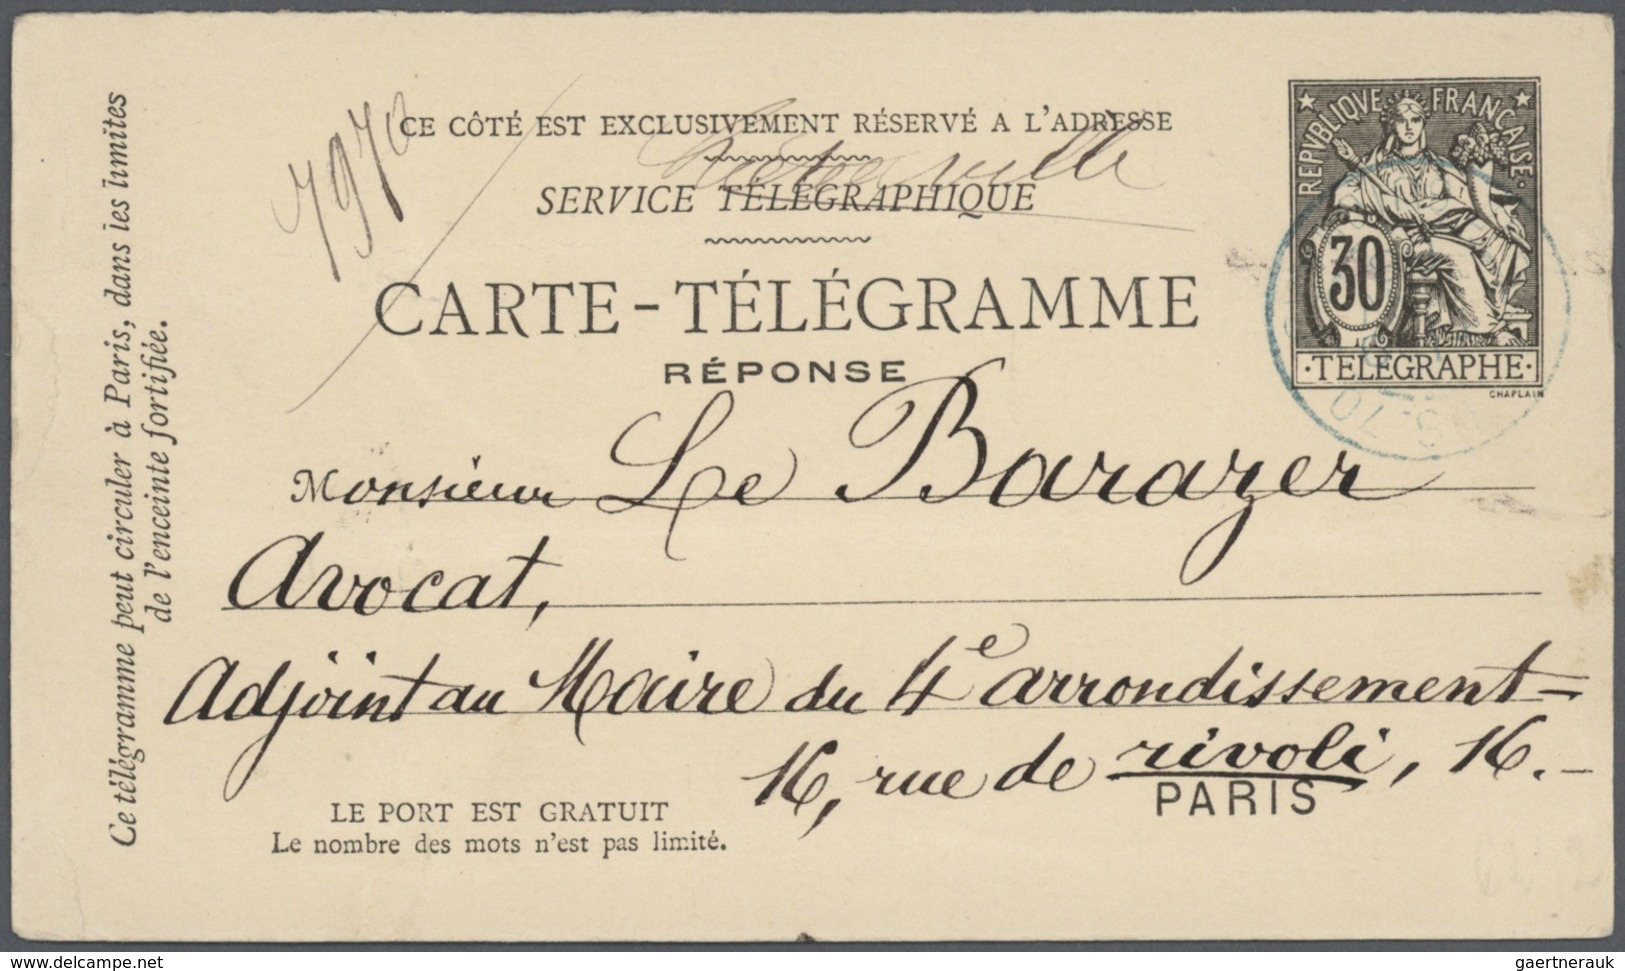 CE CÔTÉ EST EXCLUSIVEMENT RÉSERVÉ A L'ADRESSE
SERVICE TÉLÉGRAPHIQUE
CARTE-TÉLÉGRAMME
RÉPONSE
REPVBLIQVE FRANCAISE
30
TELEGRAPHE
CHAPLAIN
Monsieur Le Barazer
Avocat,
Adjoint au Maire du 4e arrondissement-
16, rue de rivoli, 16.-
PARIS
LE PORT EST GRATUIT
Le nombre des mots n'est pas limité.
Ce télégramme peut circuler à Paris, dans les limites
de l'enceinte fortifiée.
www.delcampe.net
gaertnerauk